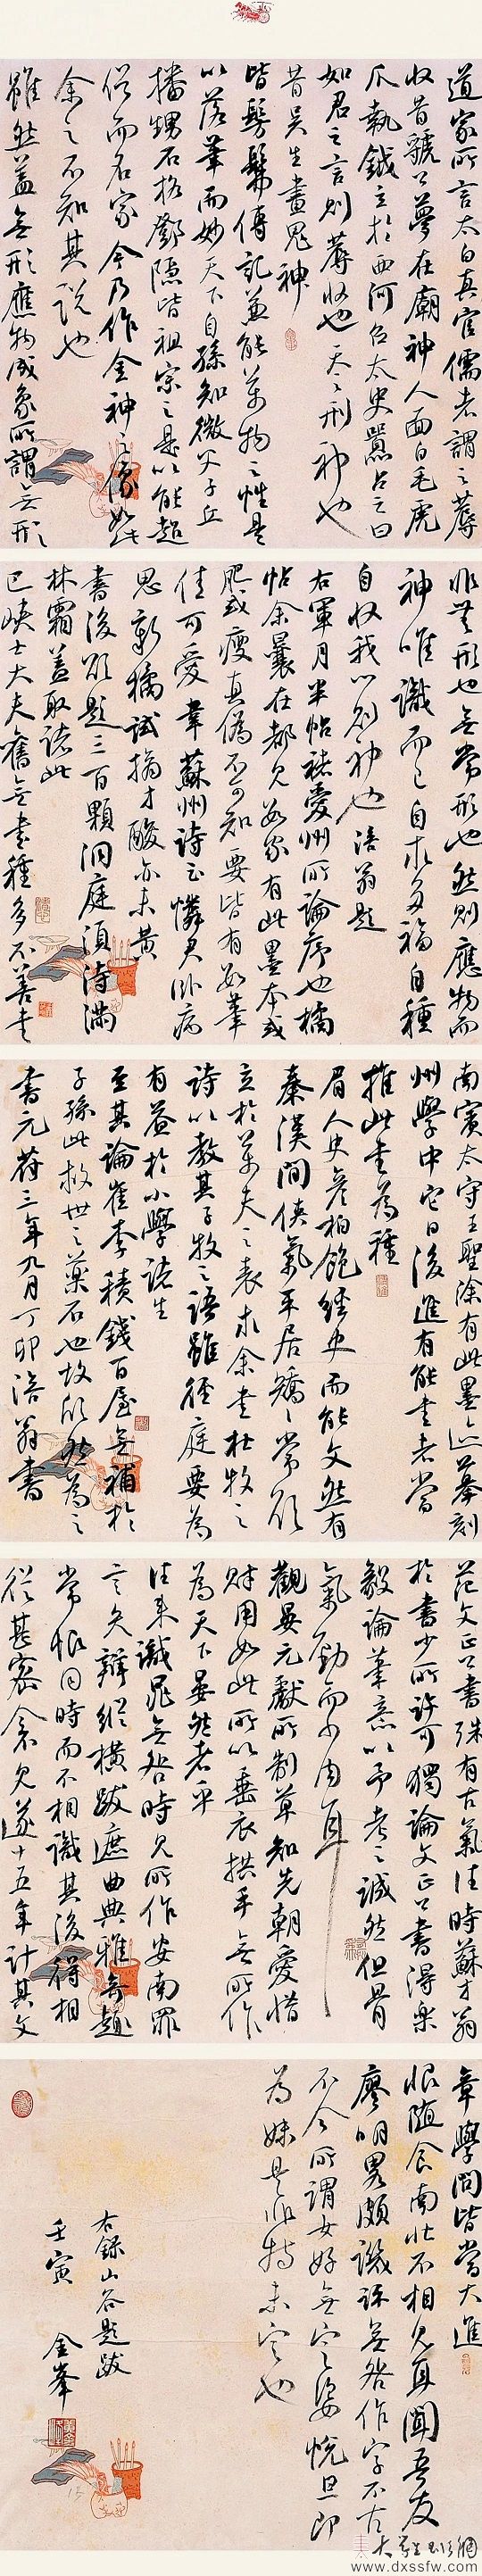 道家所言太白真官儒者謂之蓐
收昔虢公夢在廟神人面白毛虎
爪執鉞立於西河召太史嚚占之曰
如君之言則蓐收也天之刑神也
昔吳生畫鬼神
皆髣髴傳記兼能萬物之性是
以落筆而妙天下自孫知微父子丘
播甥石恪鄧隱皆祖宗之是以能超
俗而名家今乃作金神之像如此
余之不知其說也
雖然蓋無形應物成象所謂無形
非無形也無常形也然則應物而
神唯識而已自求多福自種
自收我以刻神也涪翁題
右軍月半帖褚愛州所論序也橘
帖余曩在都見數家有此墨本或
肥或瘦真偽不可知要皆有數筆
佳可愛韋蘇州詩云憐君臥病
思新橘試摘才酸亦未黃
書後欲題三百顆洞庭須待滿
林霜蓋取諸此
巴峽士大夫舊無書種多不善書
南賓太守王聖塗有此墨迹摹刻
州學中它日後進有能書者當
推此書為種
眉人史彥柏飽經史而能文然有
秦漢間俠氣平居矯矯常欲
立於萬夫之表求余書杜牧之
詩以教其子牧之語雖徑庭要為
有益於小學諸生
至其論崔李積錢百屋無補於
子孫此救世之藥石也故欣然為之
書元符三年九月丁卯涪翁書
范文正公書殊有古氣往時蘇才翁
於書少所許可獨論文正公書得樂
毅論筆意以予考之誠然但骨
氣勁而少肉耳
觀晏元獻所制草知先朝愛惜
財用如此所以垂衣拱手無所作
為天下晏然者乎
往來識晁無咎時見所作安南罪
言文辯縱橫跋遮曲典雅奇麗
常恨同時而不相識其後得相
從甚密今不見遂十五年計其文
章學問皆當大進
恨隨食南北不相見耳聞吾友
廖明畧頗譏評無咎作字不古
不今所謂女好無定姿悅目即
為姝是非特未定也
右錄山谷題跋
壬寅 金峯
www.dxssfw.com